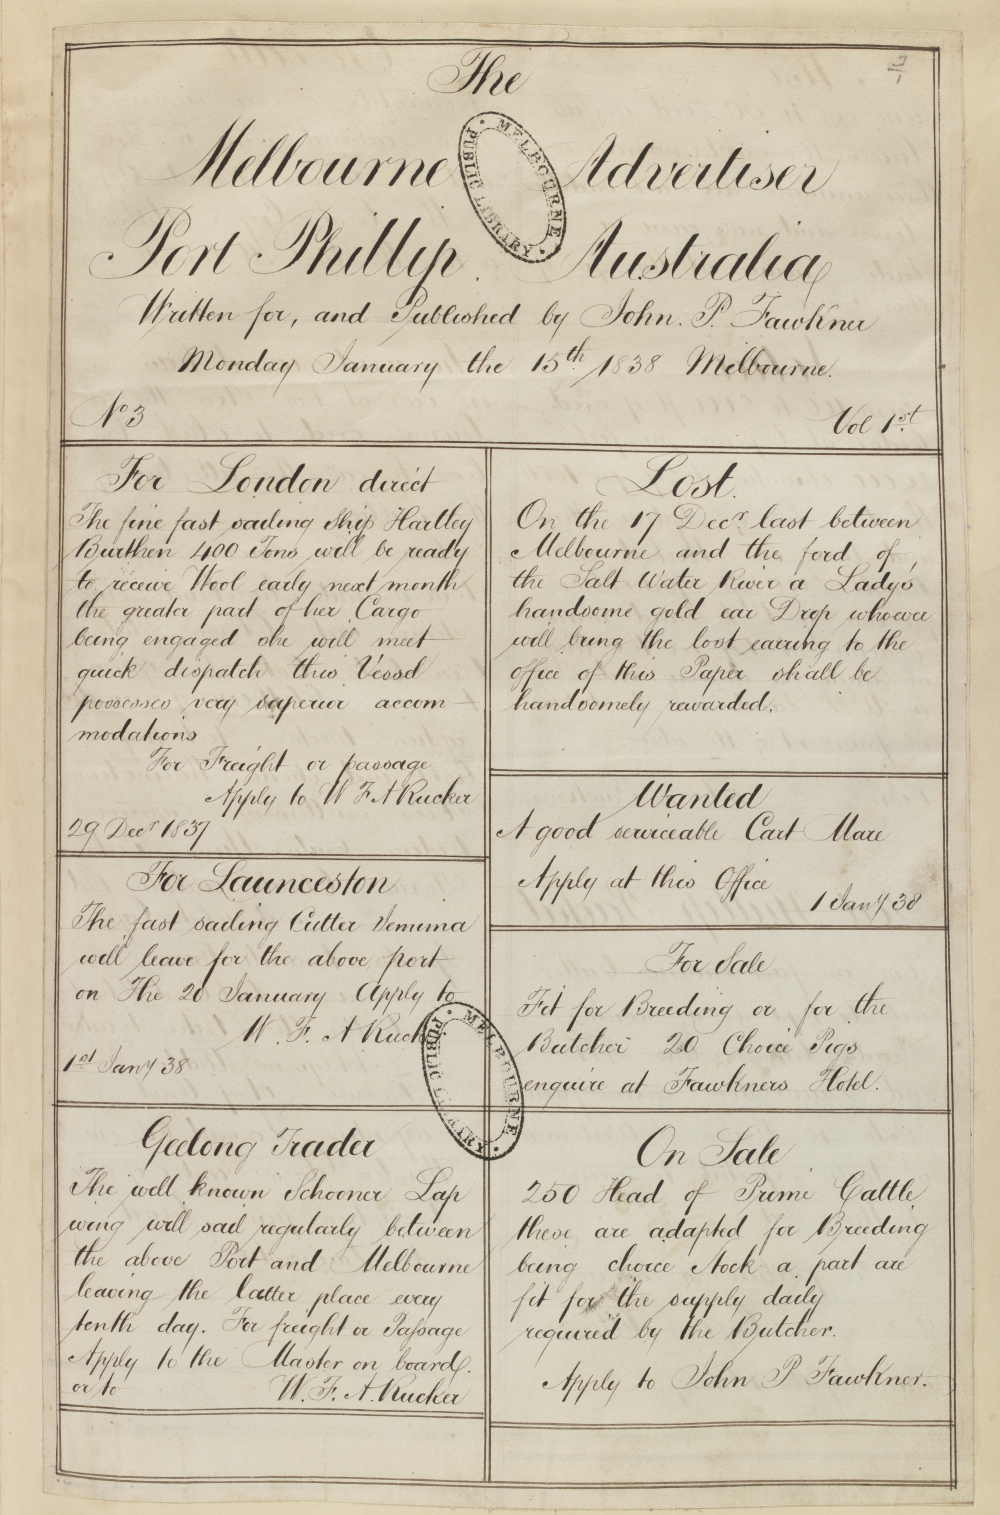 3/1
The
Melbourne Advertiser
Port Phillip. Australia
Written for, and Published by John. P. Fawkner
Monday January the 15th 1838 Melbourne.
No 3
Vol 1st.
MELBOURNE
PUBLIC LIBRARY
For London direct
The fine fast sailing Ship Hartley
Burthen 400 Tons will be ready
to receive Wool early next month
the greater part of her Cargo
being engaged she will meet
quick dispatch this Vessel
possesses very superior accom-
modations
For Freight or passage
Apply to W F A Rucker
29 Decr 1837
For Launceston
The fast sailing Cutter Jemima
will leave for the above port
on The 20 January Apply to
W. F. A Rucker
1st Jany 38
Geelong Trader
The well known Schooner Lap
wing will sail regularly between
the above Port and Melbourne
leaving the latter place every
tenth day. For freight or Passage
Apply to the Master on board.
or to W. F. A. Rucker
Lost.
On the 17 Decr last between
Melbourne and the ford of
the Salt Water River a Lady's
handsome gold ear Drop whoever
will bring the lost earring to the
office of this Paper shall be
handsomely rewarded.
Wanted
A good serviceable Cart Mare
Apply at this Office
1 Jany 38
For Sale
Fit for Breeding or for the
Butcher 20 Choice Pigs
enquire at Fawkners Hotel.
MELBOURNE
PUBLIC LIBRARY
On Sale
250 Head of Prime Cattle
these are adapted for Breeding
being choice stock a part are
fit for the supply daily
required by the Butcher.
Apply to John P Fawkner.